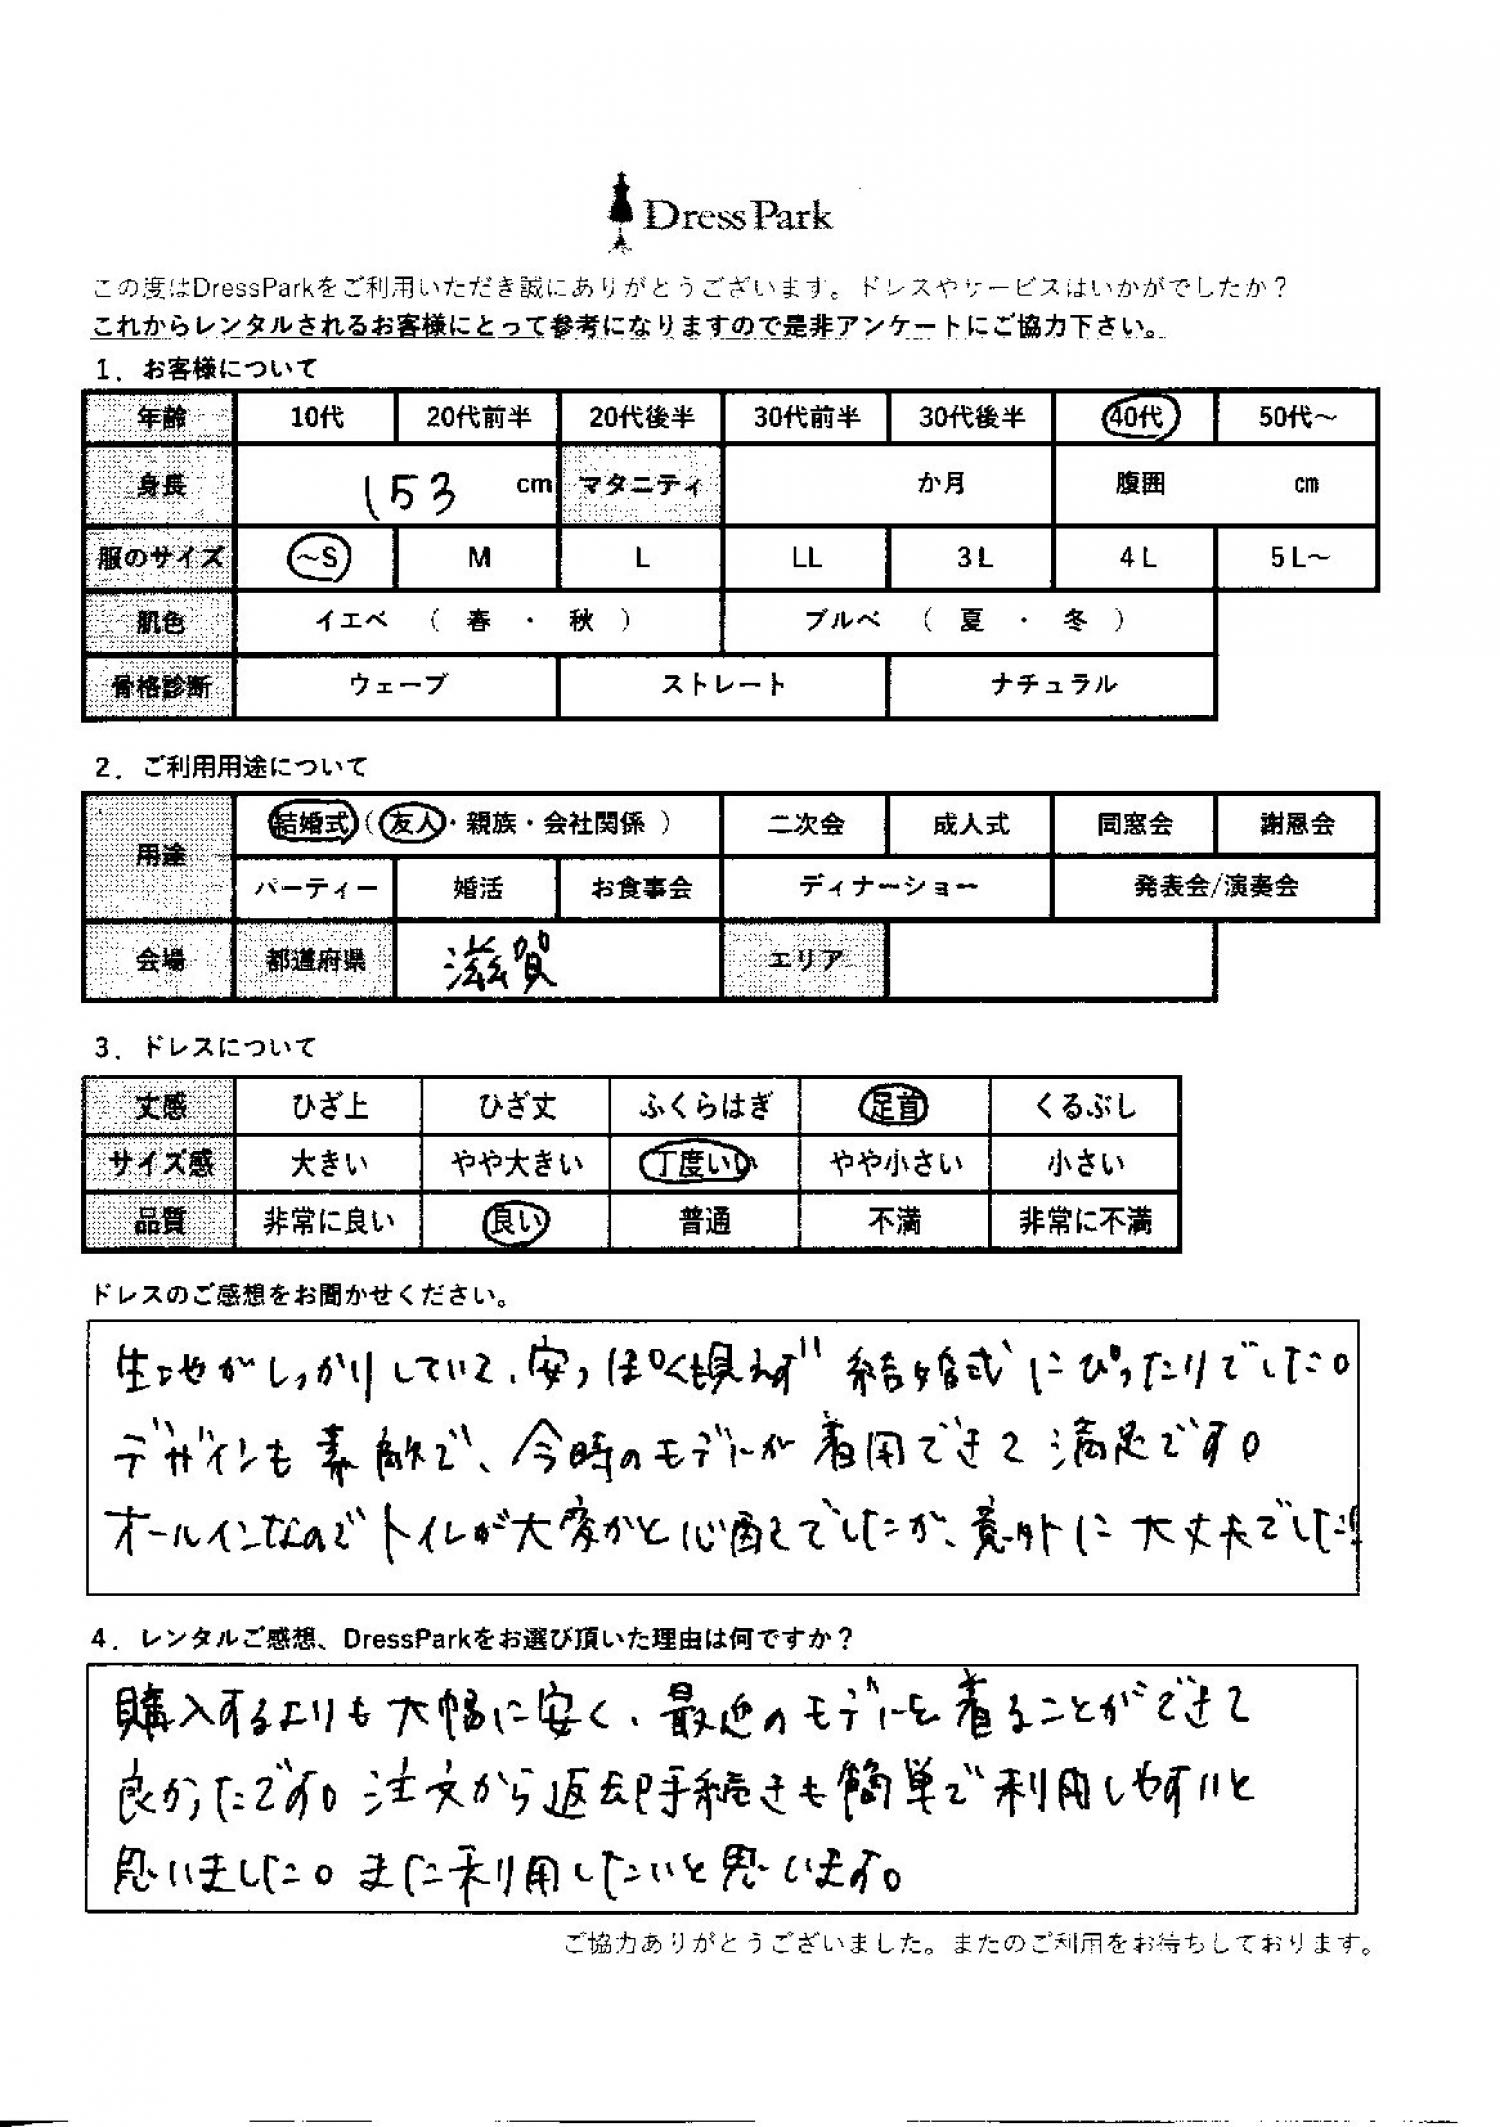 Dress Park
この度はDressParkをご利用いただき誠にありがとうございます。ドレスやサービスはいかがでしたか？
これからレンタルされるお客様にとって参考になりますので是非アンケートにご協力下さい。
1．お客様について
年齢 10代 20代前半 20代後半 30代前半 30代後半 40代 50代～
身長 153 cm マタニティ か月 腹囲 cm
服のサイズ ～S M L LL 3L 4L 5L～
肌色 イエベ（ 春 ・ 秋 ） ブルベ（ 夏 ・ 冬 ）
骨格診断 ウェーブ ストレート ナチュラル
2．ご利用用途について
用途 結婚式（友人・親族・会社関係 ） 二次会 成人式 同窓会 謝恩会
パーティー 婚活 お食事会 ディナーショー 発表会/演奏会
会場 都道府県 滋賀 エリア
3．ドレスについて
丈感 ひざ上 ひざ丈 ふくらはぎ 足首 くるぶし
サイズ感 大きい やや大きい 丁度いい やや小さい 小さい
品質 非常に良い 良い 普通 不満 非常に不満
ドレスのご感想をお聞かせください。
生地がしっかりしていて、安っぽくも見えず 結婚式にぴったりでした。
デザインも素敵で、今時のモデルが着用できて満足です。
オールインなのでトイレが大変かと心配してでしたが、意外に大丈夫でした!
4．レンタルご感想、DressParkをお選び頂いた理由は何ですか？
購入するよりも大幅に安く、最近のモデルを着ることができて
良かったです。注文から返却手続きも簡単で利用しやすいと
思いました。また利用したいと思います。
ご協力ありがとうございました。またのご利用をお待ちしております。